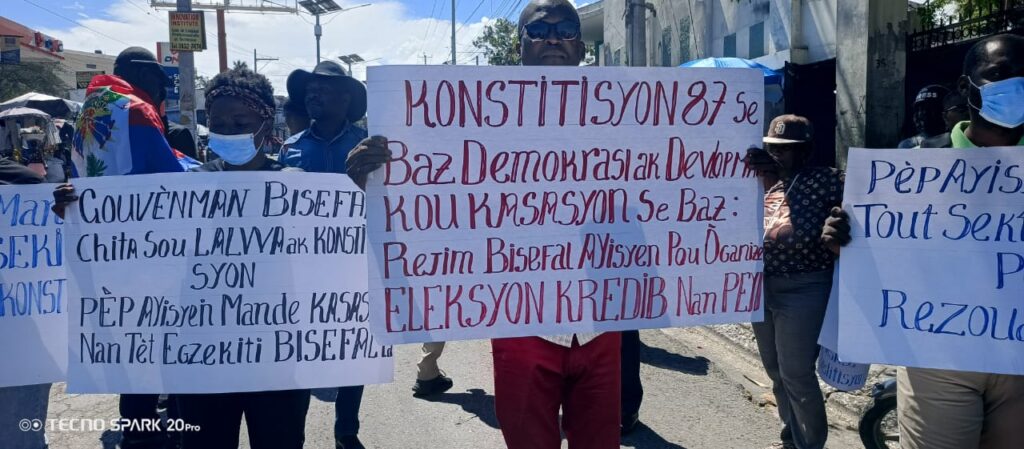 INNOVATION
INSTITUTE
KONSTITISYON 87 Se
Baz Demokrasi ak Devlopma
KOU KASASYON Se Baz:
Rejim Bisefal Ayisyen Pou Òganize
ELEKSYON KREDIB Nan PEYI
GOUVÈNMAN BISEFAL
Chita Sou LALWA ak KONSTI
SYON
PÈP AYisyen Mande KASAS
Nan Tèt Egzekiti BISEFAL La
SEKI
KONST
PèP Ayis
Tout Sekt
P
Rezou
TECNO SPARK 20Pro